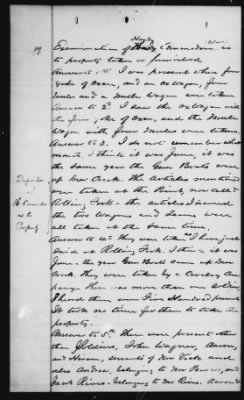 19
Examination of Handy as
to property taken or furnished
Answer to 1st I was present when four
yoke of oxen, and an ox wagon, four
mules and a mule wagon were taken
Answer to 2d I saw the ox wagon with
the four yoke of oxen, and the mule
wagon with four mules were taken
Answer to 3. I do not remember what
month I think it was June, it was
the same year the Gun Boats were
up Deer Creek. The articles mentioned
were taken at the Point, now called
Rolling Fork - the articles
the two wagons and teams were
all taken at the same time.
Answer to 4th They were taken as I have just
said at Rolling Fork. I think it was
June - the year Gun Boats came up Deer
Creek. They were taken by a Cavalry Com
pany There was more than one soldier,
I heard there were Five Hundred present
It took no time for them to take the
property.
Answer to 5th There were present other
than Soldiers, John Wagner, Aaron,
and Hiram, servants of Mr and
also Andrew, belonging to Mr and
Jacob Rives - belonging to Mr Rives. Aaron
Deposition
of
as to
Property